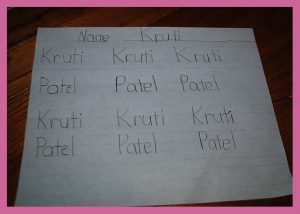 Name Kruti
Kruti Kruti Kruti
Patel Patel Patel
Kruti Kruti Kruti
Patel Patel Patel